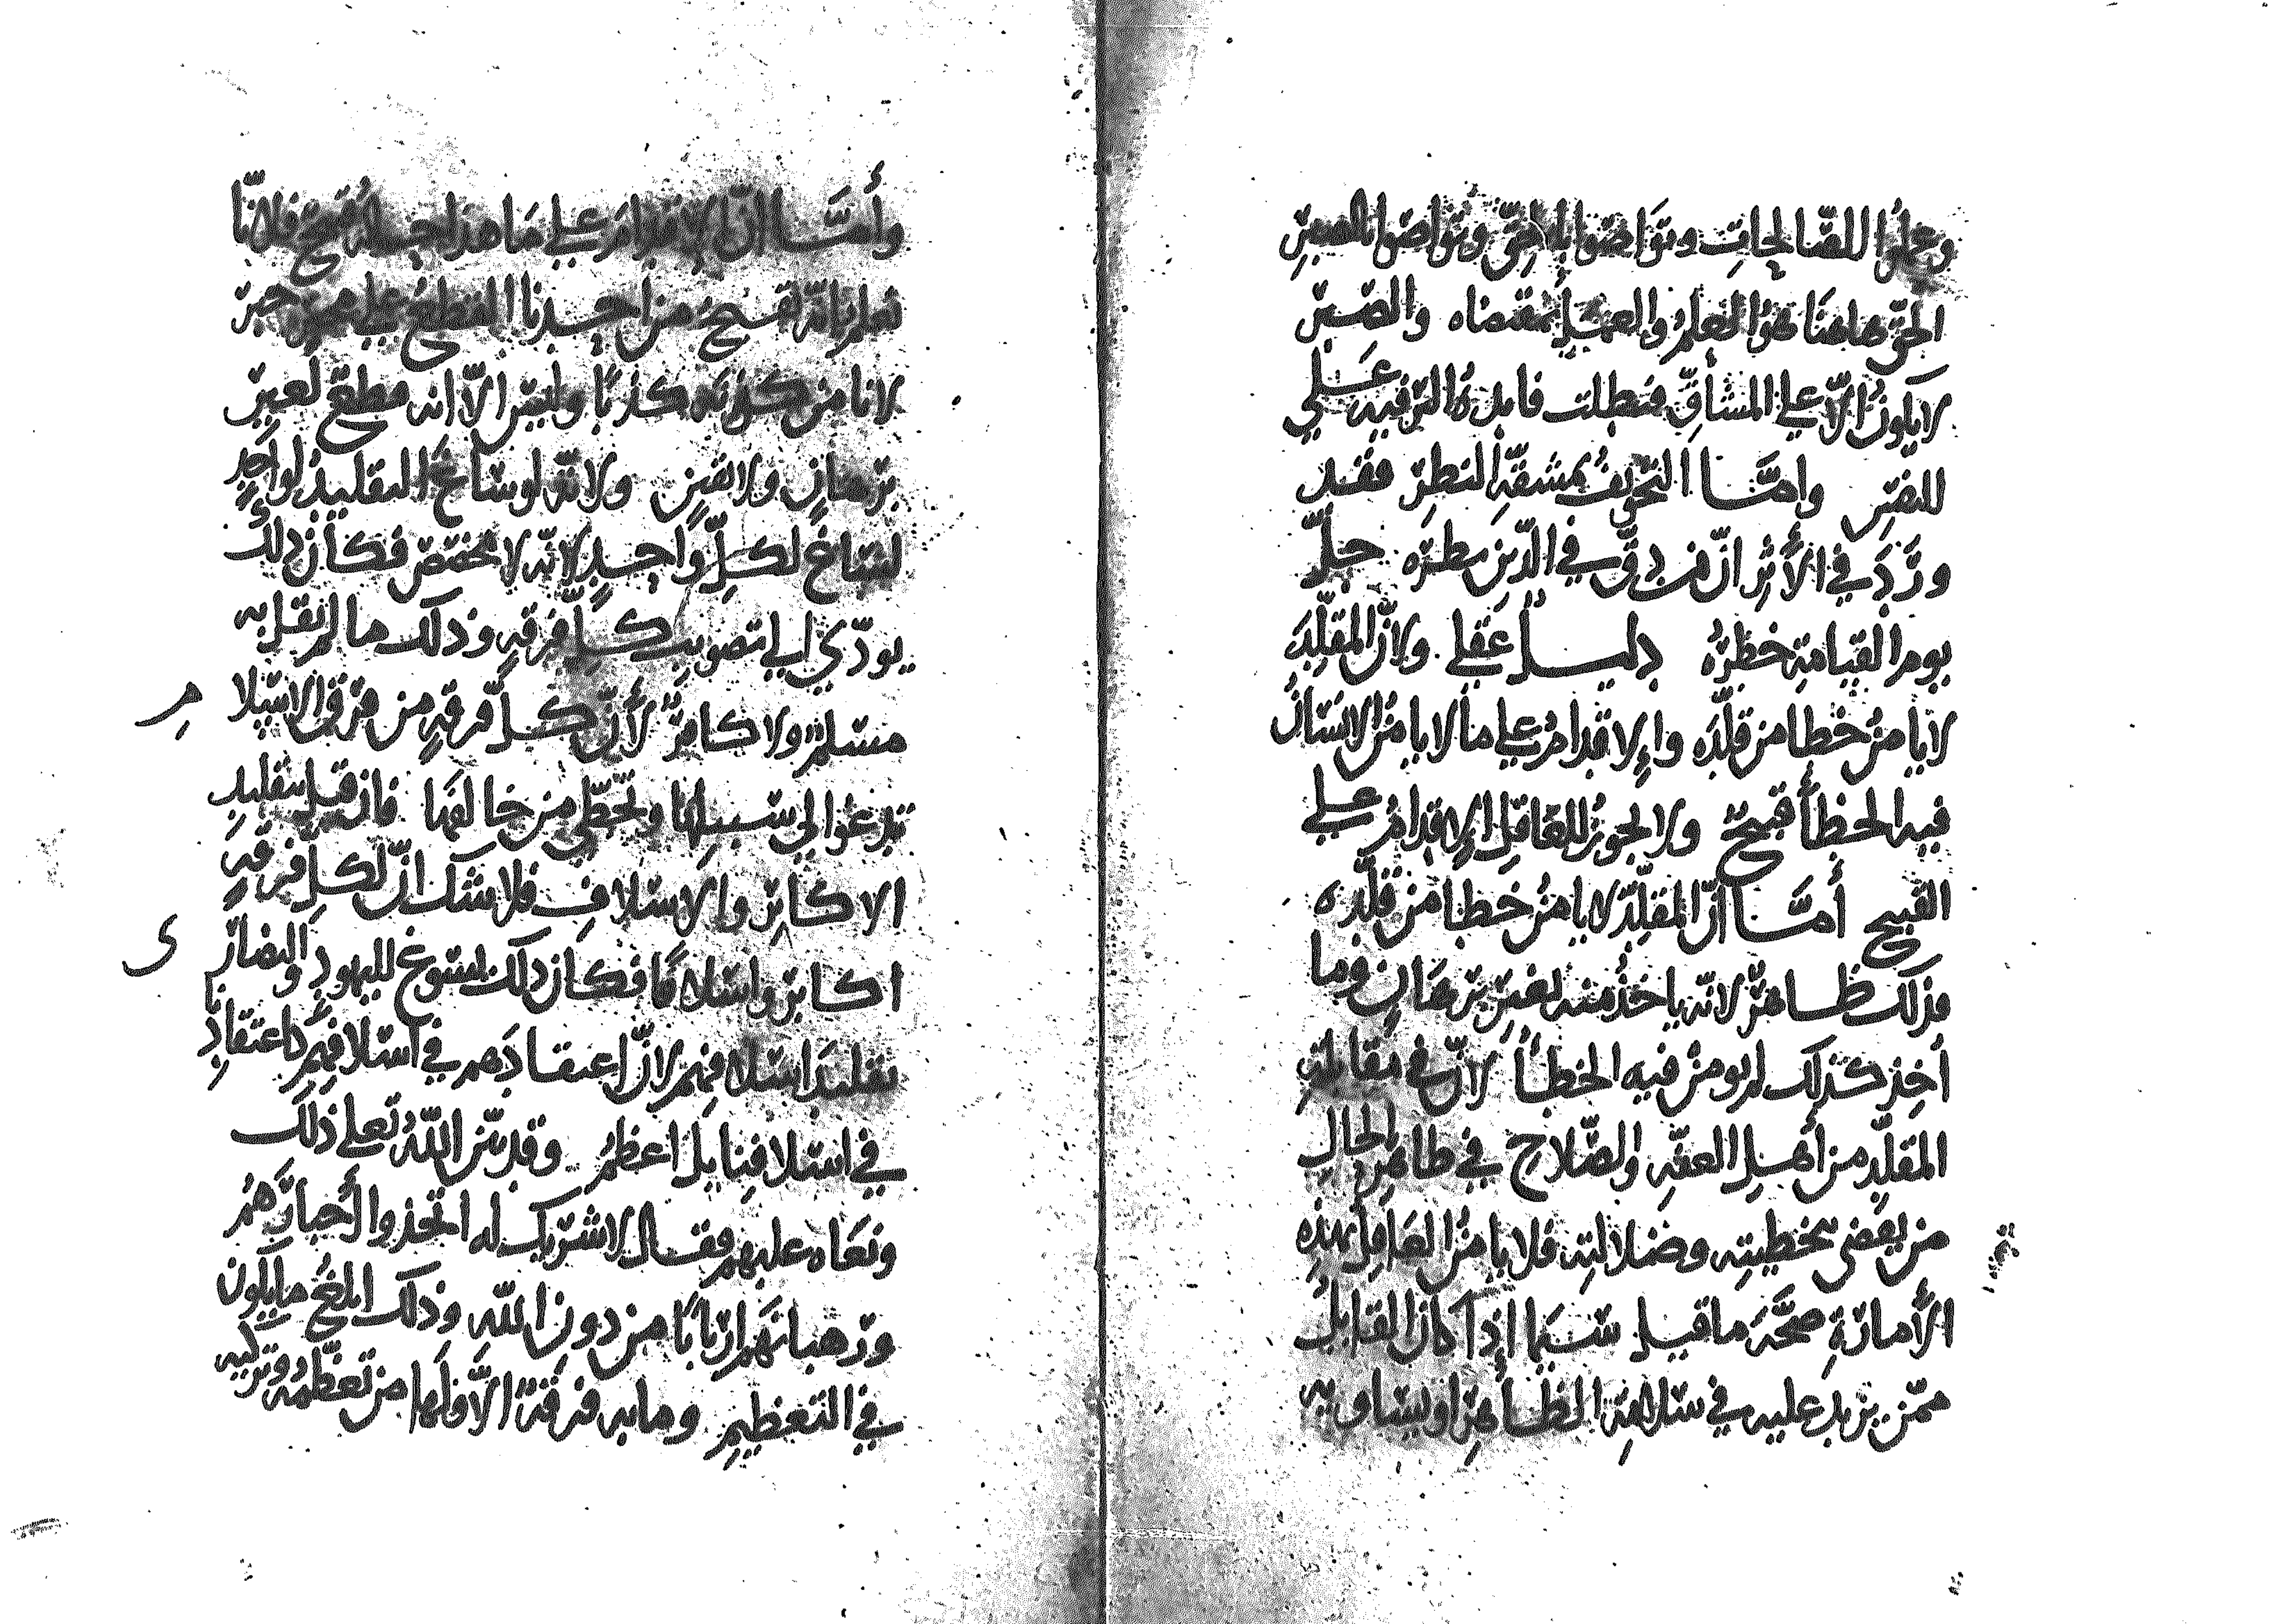 وعملوا الصالحات وتواصوا بالحق وتواصوا بالصبر
الحق هاهنا هو العلم والعمل بمقتضاه والصبر
لا يكون إلا على المشاق فبطلت فايدة الترفيه على
النفس وأما التخويف بمشقة النظر فقد
ورد في الأثر أن من دق في الدين نظره جل
يوم القيامة خطره دليل عقلي ولأن المقلد
لا يأمن خطا من قلده والإقدام على ما لا يأمن الانسان
فيه الخطأ قبيح ولا يجوز للعاقل الإقدام على
القبيح أما أن المقلد لا يأمن خطا من قلده
فذلك ظاهر لأنه ياخذ منه بغير برهان وما
أخذ كذلك لم يؤمن فيه الخطأ لأن في مقابلة
المقلد من أهل العفه والصلاح في ظاهر الحال
من يقضي بتخطيته وضلالته فلا يأمن العاقل بهذه
الأمارة صحة ما قيل سيما إذا كان القايل
ممن يزيد عليه في سلامة الظاهر او يساويه
وأما ان الإقدام على ما هذا حاله قبيح فلأنا
نعلم أنه يقبح من احدنا القطع على مخبر خبر
لا يأمن كونه كذبا وليس إلا انه قطع لغير
برهان ولا يقين ولأنه لو ساغ التقليد لواحد
لساغ لكل واحد لأنه لا مخصص فكان ذلك
يودي إلى تصويب كل فرقه وذلك ما لم يقل به
مسلم ولا كافر لأن كل فرقة من فرق الاسلام
تدعوا إلى سبيلها وتخطي من خالفها فان قيل بتقليد
الاكابر والاسلاف فلا شك ان لكل فرقة
اكابر واسلافا فكان ذلك يسوغ لليهود والنصارى
تقليد اسلافهم لأن اعتقادهم في اسلافهم كاعتقادنا
في اسلافنا بل اعظم وقد بين الله تعلى ذلك
ونعاه عليهم فقال لا شريك له اتخذوا أحبارهم
ورهبانهم اربابا من دون الله وذلك ابلغ ما يكون
في التعظيم وما به فرقة إلا ولها من تعظمه وتزكيه